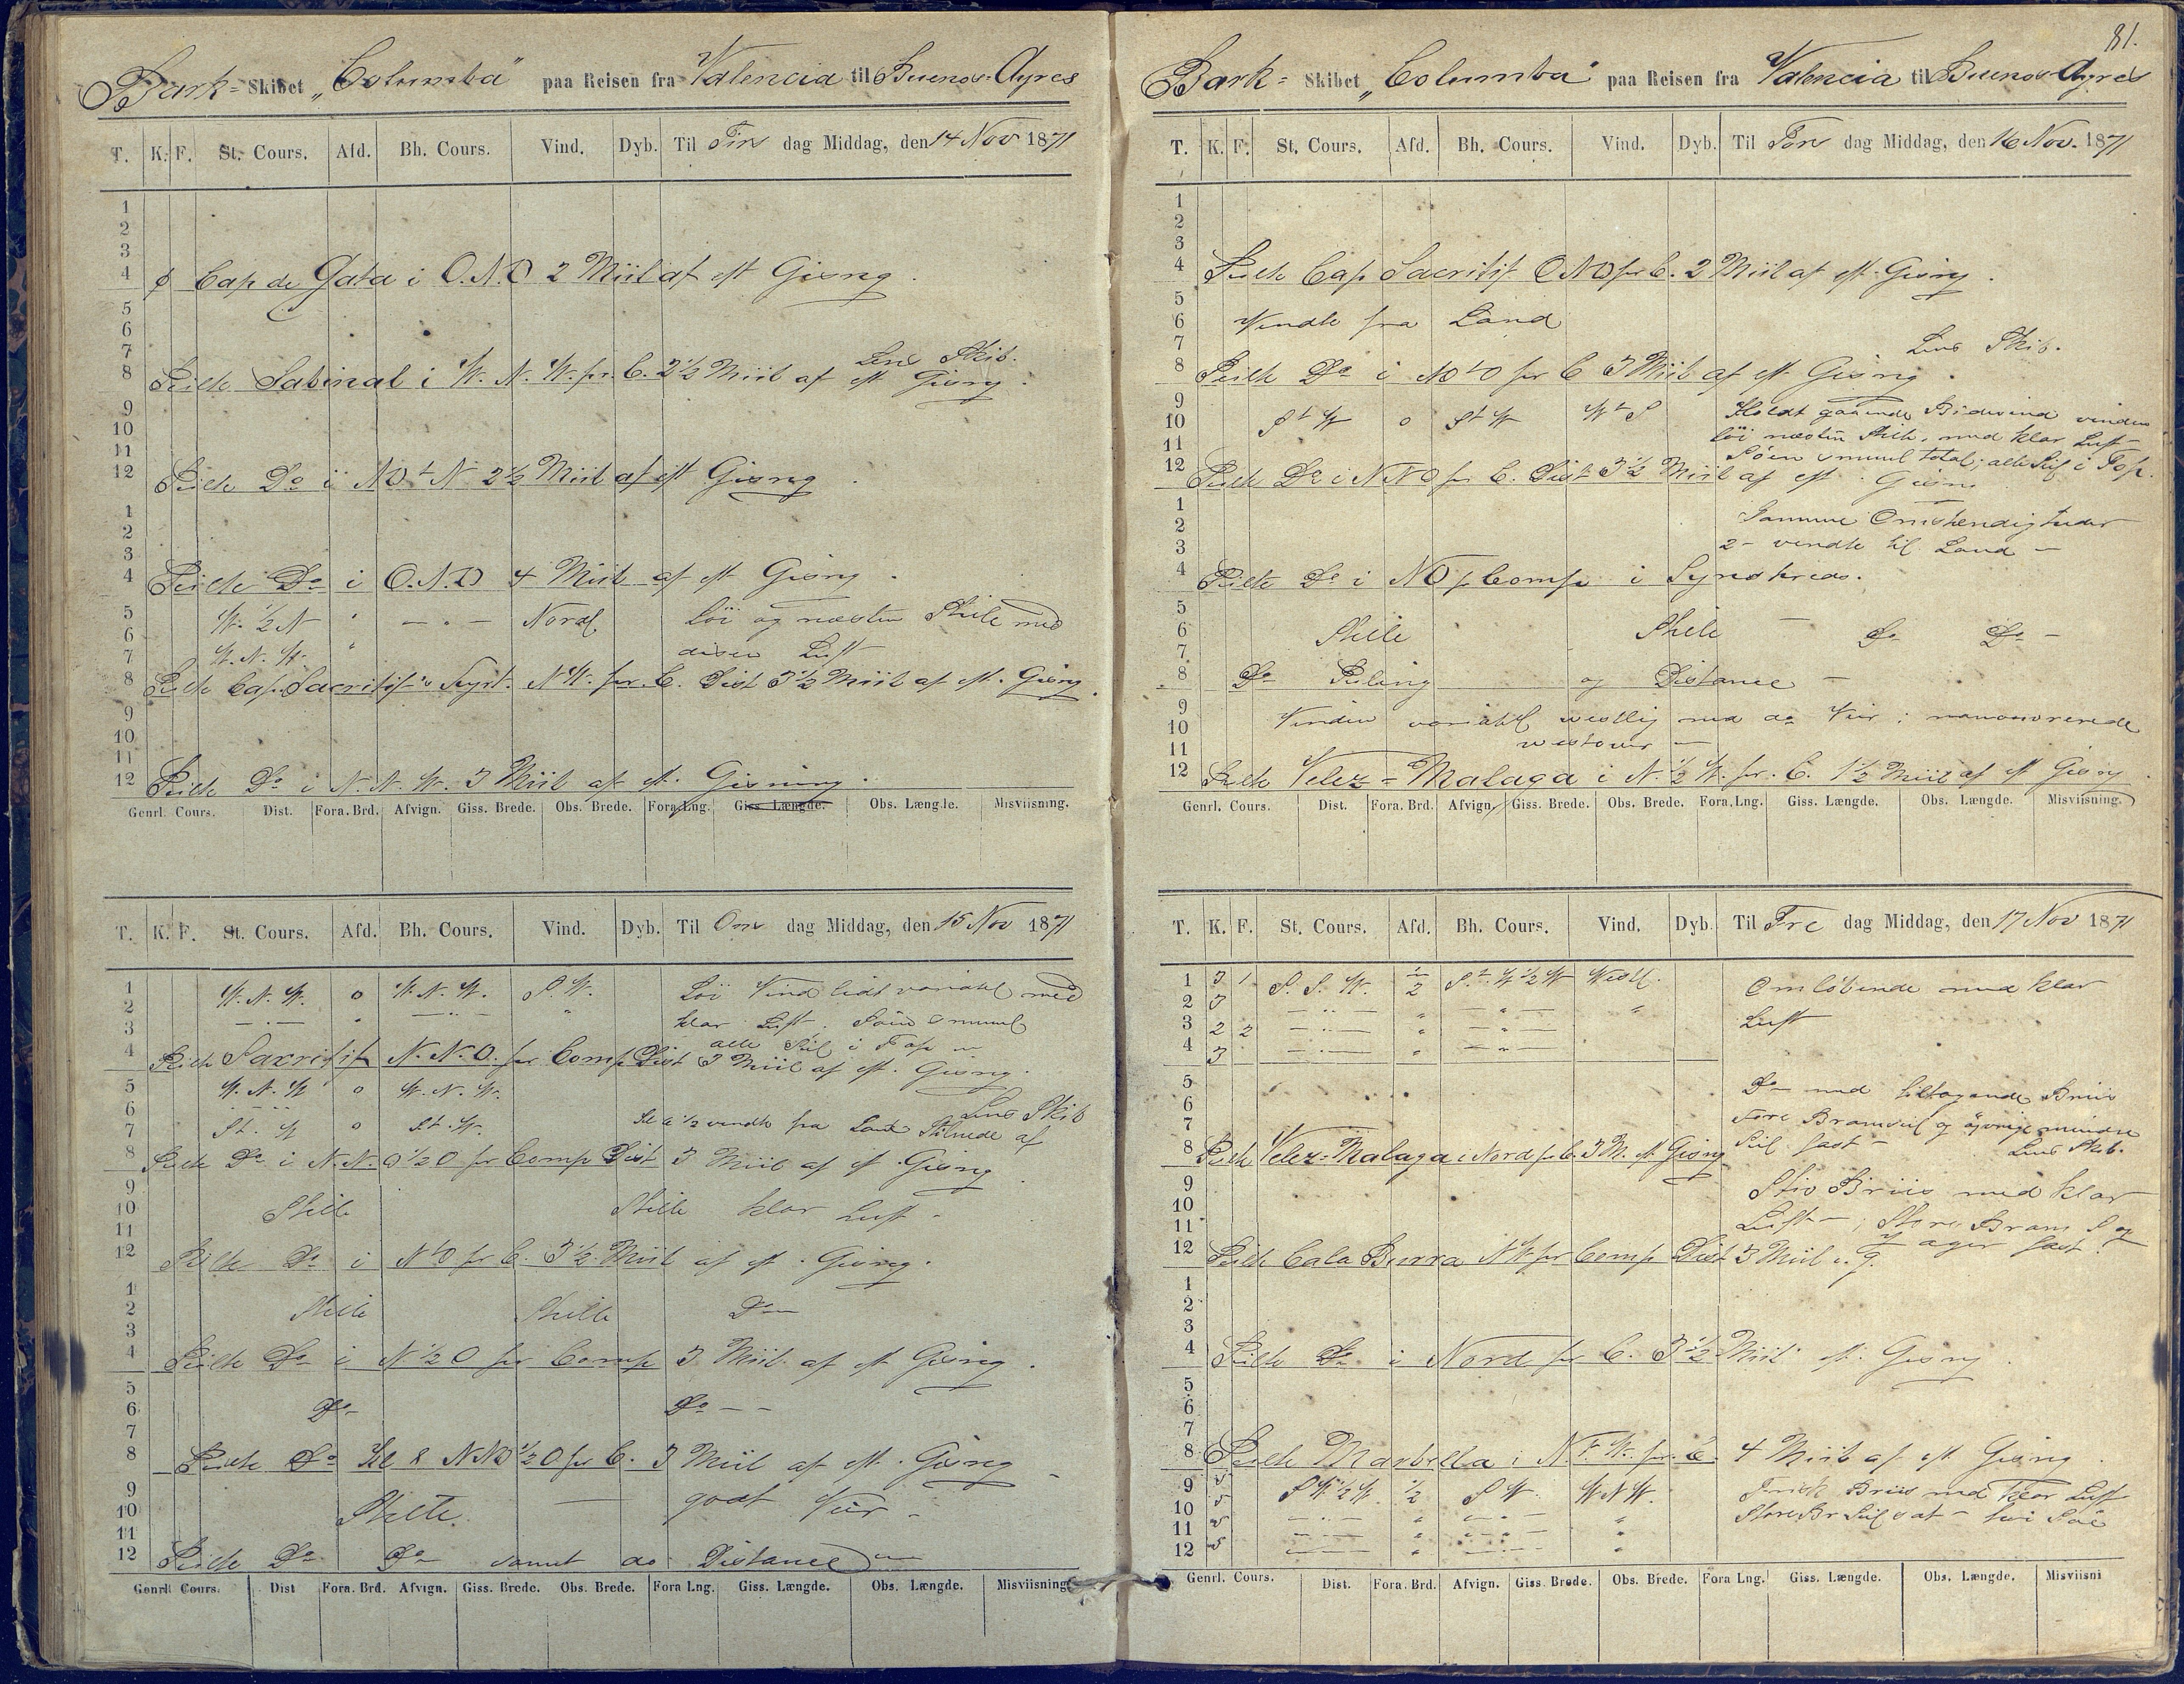 Bark= Skibet „Columba" paa Reisen fra Valencia til Buenos=Ayres
T. K. F. St. Cours. Afd. Bh. Cours. Vind. Dyb. Til Tirs dag Middag, den 14 Nov 1871
1
2
3
4 Cap de Gata i O.N.O 2 Miil af est Gisng.
5
6
7 Lens Skib.
8 Peilte Sabinal i W.N.W. pr. C. 2½ Miil af est Gisng.
9
10
11
12 Peilte Do i NOtN 2½ Miil af est Gisng.
1
2
3
4 Peilte Do i O.N.O 4 Miil af est Gisng.
5 W. ½ N " — " — Nordl. Löi og næsten Stille med
6
7 W.N.W. " disen Luft
8 Peilte Cap Sacritif's Fyrt. NW. pr. C. Dist 3½ Miil af est. Gisng.
9
10
11
12 Peilte Do i N.N.W. 3 Miil af est. Gisning.
Genrl. Cours. Dist. Fora. Brd. Afvign. Giss. Brede. Obs. Brede. Fora Lng. Giss. Længde. Obs. Længde. Misviisning.
T. K. F. St. Cours. Afd. Bh. Cours. Vind. Dyb. Til Ons dag Middag, den 15 Nov 1871
1 W.N.W. o W.N.W. S.W. Löi Vind lidt variabel med
2 — " — " — " — "
3 klar Luft. Söen smuul
4 alle Seil i Top
Peilte Sacritif N.N.O. pr Comp Dist 3 Miil af est. Gisng.
5 W.N.W o W.N.W.
6 Lens Skib
7 St.W o St.W. Kl a ½ vendte fra Land Stilnede af
8 Peilte Do i N.N.O ½ O pr Comp Dist 3 Miil af est Gisng.
9
10 Stille Stille klar Luft -
11
12 Peilte Do i NtO pr C. 3½ Miil af est. Gisng.
1
2 Stille Stille Do
3
4 Peilte Do i N ½ O pr Comp 3 Miil af est Gisng.
5
6 Do Do — —
7
8 Peilte Do Kl 8 NNO ½ O pr C. 3 Miil af est. Gisng
9
10 Stille. — godt Veir -
11
12 Peilte Do Do samt do Distance
Genrl. Cours. Dist Fora. Brd. Afvign. Giss. Brede. Obs. Brede. Fora Lng. Giss. Længde. Obs. Længde. Misviisning
81.
Bark= Skibet „Columba" paa Reisen fra Valencia til Buenos-Ayres
T. K. F. St. Cours. Afd. Bh. Cours. Vind. Dyb. Til Tors dag Middag, den 16 Nov. 1871
1
2
3
4 Peilte Cap Sacritif ONO pr C. 2 Miil af est Gisng.
5
6 Vendte fra Land
7 Lens Skib.
8 Peilte Do i NOtO pr C 3 Miil af est. Gisng.
9 Holdt gaaende Bidevind vinden
10 StW o StW WtS löi næsten Stille, med klar Luft
11 Söen smuul total; alle Seil i Top.
12 Peilte Do i NNO pr C. Dist 3½ Miil af est. Gisng
1
2 Samme Omstendigheder
3 2 - vendte til Land —
4 Peilte Do i NO pr Comp i Synskreds.
5
6 Stille Stille — Do Do —
7
8 Do Peiling og Distance —
9
10 Vinden variabel westlig med do Veir; manouvrerede
11 westover —
12 Peilte Velez=Malaga i N. ½ W. pr. C. 1½ Miil af est Gisng
Genrl. Cours. Dist. Fora. Brd. Afvign. Giss. Brede. Obs. Brede. Fora. Lng. Giss. Længde. Obs. Længde. Misviisning.
T. K. F. St. Cours. Afd. Bh. Cours. Vind. Dyb. Til Fre dag Middag, den 17 Nov 1871
1 3 1 S.S.W. ½ St.W ½ W Westl. Omlöbende med klar
2 3 — " — " — " — "
3 2 2 — " — " — " — Luft
4 3 — " — " — " —
5 Do med tiltagende Briis
6
7 Fore Bramseil og övrige mindre
8 Seil fast — Lens Skib.
Peilte Velez=Malaga i Nord pr C. 3 M. est Gisng
9 Stiv Briis med klar
10
11 Luft —; Store Bram S og
12 Jager fast.
Peilte Cala Burra NW pr Comp Dist 3 Miil e. g.
1
2
3
4 Peilte Do i Nord pr C. 3½ Miil est. Gisng
5
6
7
8 Peilte Marbella i N. pr. C. 4 Miil af est Gisng.
9 5 SW ½ W. ½ SW. WNW. Frisk Briis med klar Luft
10 5 — " — " — " — " Store Br Seil sat —
11 5 — " — " — " — "
12 5 — " — " — " — "
Genrl. Cours. Dist. Fora. Brd. Afvign. Giss. Brede. Obs. Brede. Fora Lng. Giss. Længde. Obs. Længde. Misviisni